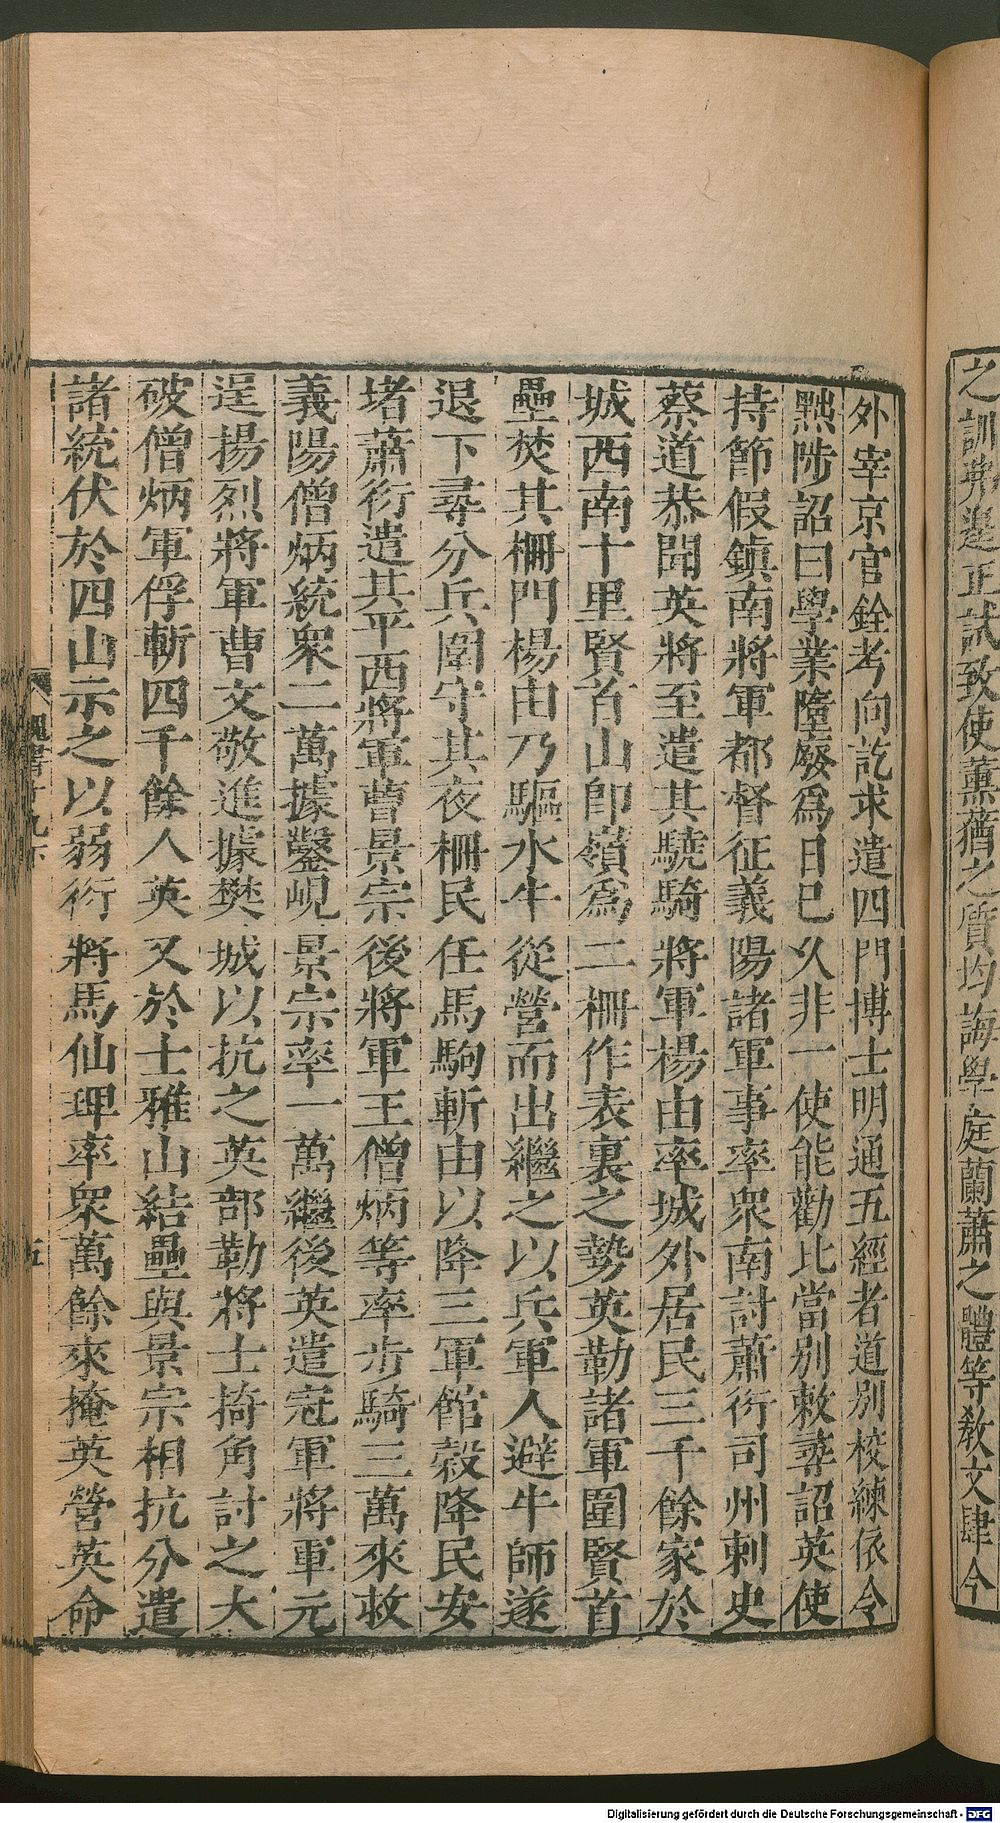 之訓非邊正試致使薰蕕之質均誨學庭蘭蕭之體等教文肆今
外宰京官銓考向訖求遣四門博士明通五經者道別校練依令
黜陟詔曰學業墮廢爲日已久非一使能勸比當別敕尋詔英使
持節假鎮南將軍都督征義陽諸軍事率衆南討蕭衍司州刺史
蔡道恭聞英將至遣其驍騎將軍楊由率城外居民三千餘家於
城西南十里賢首山即嶺爲二柵作表裏之勢英勒諸軍圍賢首
壘焚其柵門楊由乃驅水牛從營而出繼之以兵軍人避牛師遂
退下尋分兵圍守其夜柵民任馬駒斬由以降三軍館穀降民安
堵蕭衍遣其平西將軍曹景宗後將軍王僧炳等率步騎三萬來救
義陽僧炳統衆二萬據鑿峴景宗率一萬繼後英遣冠軍將軍元
逞揚烈將軍曹文敬進據樊城以抗之英部勒將士掎角討之大
破僧炳軍俘斬四千餘人英又於士雅山結壘與景宗相抗分遣
諸統伏於四山示之以弱衍將馬仙琕率衆萬餘來掩英營英命
魏書十九下
五
Digitalisierung gefördert durch die Deutsche Forschungsgemeinschaft - DFG